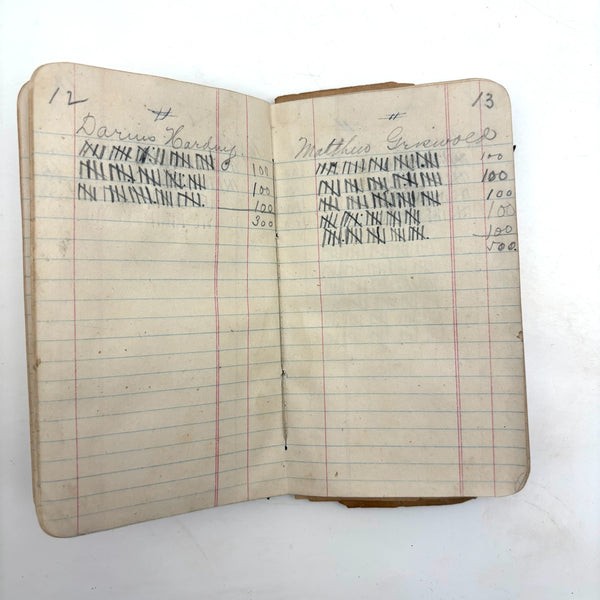 12
Darius Harding
100
100
100
300
13
Matthew Griswold
100
100
100
100
100
500.